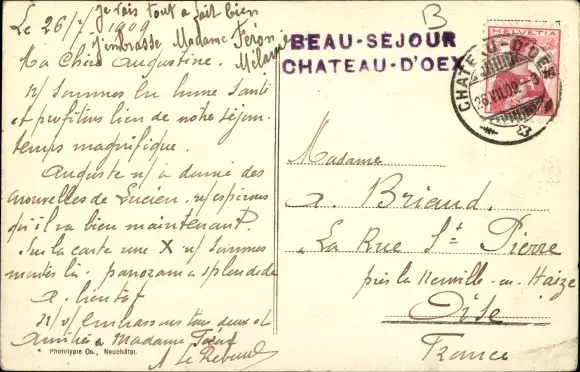 Le 26/7 1909
Je vais tout à fait bien
J'embrasse Madame Féron
Ma Chère Augustine.
N/ sommes en bonne santé
et profitons bien de notre séjour
temps magnifique.
Auguste n/ a donné des
nouvelles de Lucien. n/ espérons
qu'il va bien maintenant.
Sur la carte une X n/ sommes
montés là. panorama splendide
A bientôt
N/ v/ embrassons tous deux et
amitiés à Madame
A Le
* Phototypie Co., Neuchâtel.
B
BEAU-SÉJOUR
CHATEAU-D'OEX
HELVETIA
CHATEAU-D'OEX
26.VII.09.
Madame
A. Briand.
La Rue St Pierre
près la Neuville-en-Haize
Oise
France